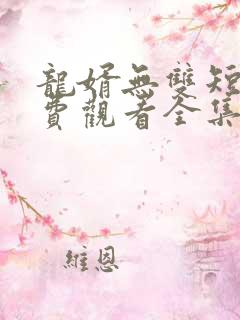 龍婿無雙短
費觀看全集
維恩